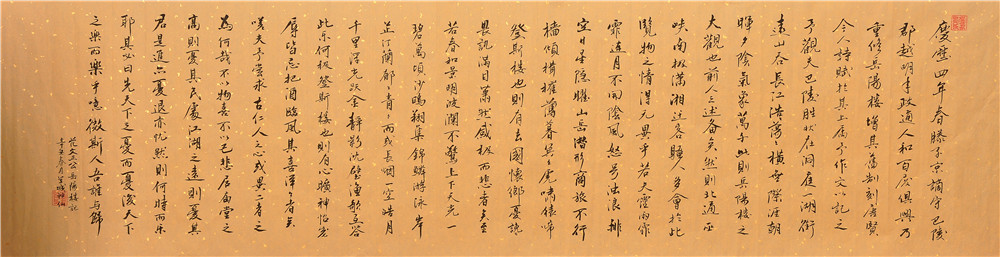 慶曆四年春滕子京謫守巴陵
郡越明年政通人和百廢俱興乃
重修岳陽樓增其舊制刻唐賢
今人詩賦於其上屬予作文以記之
予觀夫巴陵勝狀在洞庭一湖銜
遠山吞長江浩浩湯湯橫無際涯朝
暉夕陰氣象萬千此則岳陽樓之
大觀也前人之述備矣然則北通巫
峽南極瀟湘遷客騷人多會於此
覽物之情得無異乎若夫霪雨霏
霏連月不開陰風怒號濁浪排
空日星隱曜山岳潛形商旅不行
檣傾楫摧薄暮冥冥虎嘯猿啼
登斯樓也則有去國懷鄉憂讒
畏譏滿目蕭然感極而悲者矣至
若春和景明波瀾不驚上下天光一
碧萬頃沙鷗翔集錦鱗游泳岸
芷汀蘭郁郁青青而或長煙一空皓月
千里浮光躍金靜影沉璧漁歌互答
此樂何極登斯樓也則有心曠神怡寵
辱皆忘把酒臨風其喜洋洋者矣
嗟夫予嘗求古仁人之心或異二者之
為何哉不以物喜不以己悲居廟堂之
高則憂其民處江湖之遠則憂其
君是進亦憂退亦憂然則何時而樂
耶其必曰先天下之憂而憂後天下
之樂而樂乎噫微斯人吾誰與歸
范文正公岳陽樓記
春月羊城